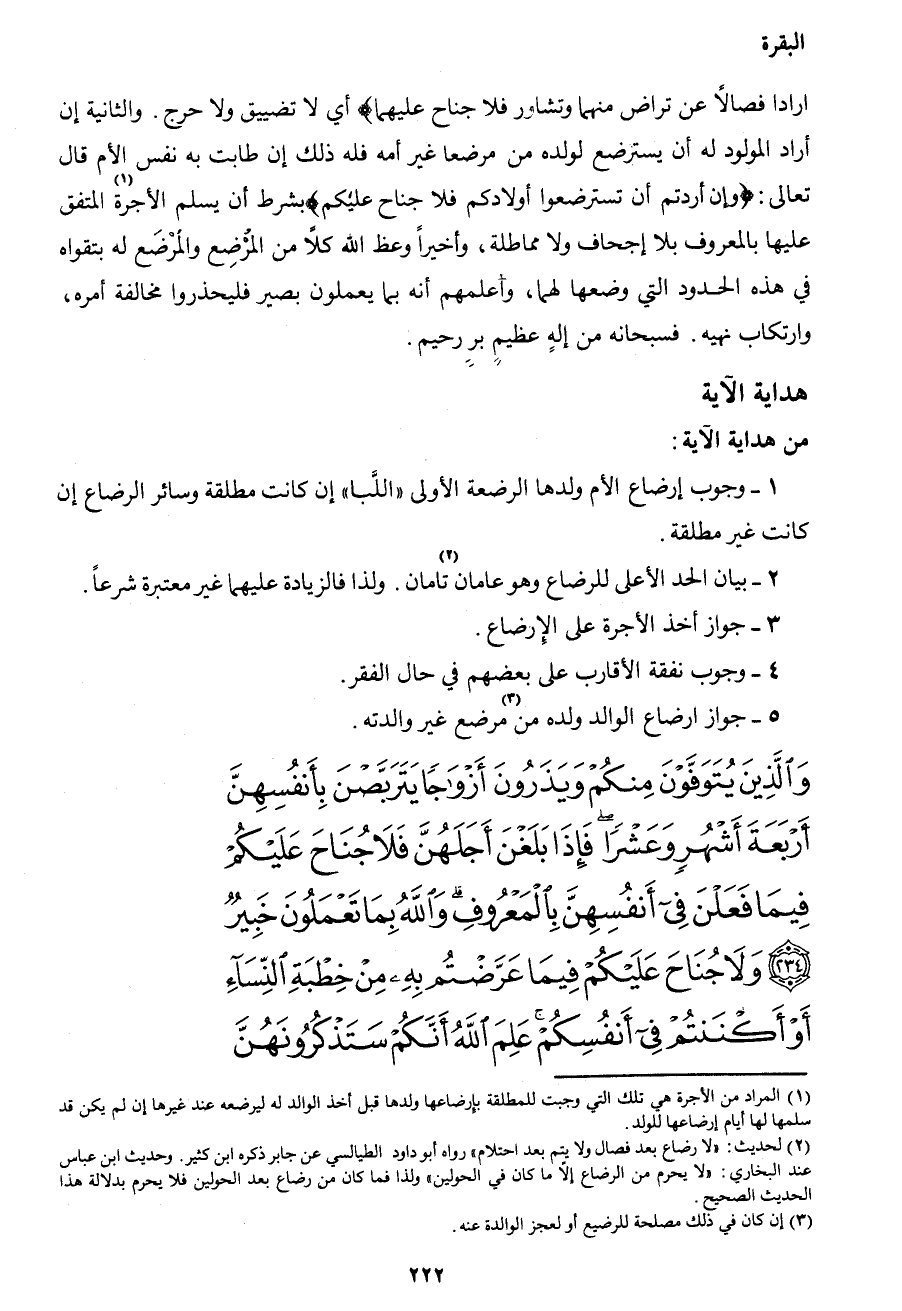 البقرة
ارادا فصالاً عن تراض منهما وتشاور فلا جناح عليهما﴾ أي لا تضييق ولا حرج. والثانية إن
أراد المولود له أن يسترضع لولده من مرضعا غير أمه فله ذلك إن طابت به نفس الأم قال
تعالى: ﴿وإن أردتم أن تسترضعوا أولادكم فلا جناح عليكم﴾ بشرط أن يسلم الأجرة(١) المتفق
عليها بالمعروف بلا إجحاف ولا مماطلة، وأخيراً وعظ الله كلاً من المُرْضِع والمُرْضَع له بتقواه
في هذه الحدود التي وضعها لهما، وأعلمهم أنه بما يعملون بصير فليحذروا مخالفة أمره،
وارتكاب نهيه. فسبحانه من إلهٍ عظيمٍ برٍ رحيم.
هداية الآية
من هداية الآية:
١ ـ وجوب إرضاع الأم ولدها الرضعة الأولى «اللَّبا» إن كانت مطلقة وسائر الرضاع إن
كانت غير مطلقة.
٢ ـ بيان الحد الأعلى للرضاع وهو عامان تامان(٢). ولذا فالزيادة عليهما غير معتبرة شرعاً.
٣ ـ جواز أخذ الأجرة على الإرضاع.
٤ ـ وجوب نفقة الأقارب على بعضهم في حال الفقر.
٥ ـ جواز ارضاع الوالد ولده من(٣) مرضع غير والدته.
وَٱلَّذِينَ يُتَوَفَّوْنَ مِنكُمْ وَيَذَرُونَ أَزْوَٰجًا يَتَرَبَّصْنَ بِأَنفُسِهِنَّ
أَرْبَعَةَ أَشْهُرٍ وَعَشْرًا ۖ فَإِذَا بَلَغْنَ أَجَلَهُنَّ فَلَا جُنَاحَ عَلَيْكُمْ
فِيمَا فَعَلْنَ فِىٓ أَنفُسِهِنَّ بِٱلْمَعْرُوفِ ۗ وَٱللَّهُ بِمَا تَعْمَلُونَ خَبِيرٌ
﴿٢٣٤﴾ وَلَا جُنَاحَ عَلَيْكُمْ فِيمَا عَرَّضْتُم بِهِۦ مِنْ خِطْبَةِ ٱلنِّسَآءِ
أَوْ أَكْنَنتُمْ فِىٓ أَنفُسِكُمْ ۚ عَلِمَ ٱللَّهُ أَنَّكُمْ سَتَذْكُرُونَهُنَّ
(١) المراد من الأجرة هي تلك التي وجبت للمطلقة بإرضاعها ولدها قبل أخذ الوالد له ليرضعه عند غيرها إن لم يكن قد
سلمها لها أيام إرضاعها للولد.
(٢) لحديث: «لا رضاع بعد فصال ولا يتم بعد احتلام» رواه أبو داود الطيالسي عن جابر ذكره ابن كثير. وحديث ابن عباس
عند البخاري: «لا يحرم من الرضاع إلّا ما كان في الحولين» ولذا فما كان من رضاع بعد الحولين فلا يحرم بدلالة هذا
الحديث الصحيح.
(٣) إن كان في ذلك مصلحة للرضيع أو لعجز الوالدة عنه.
٢٢٢